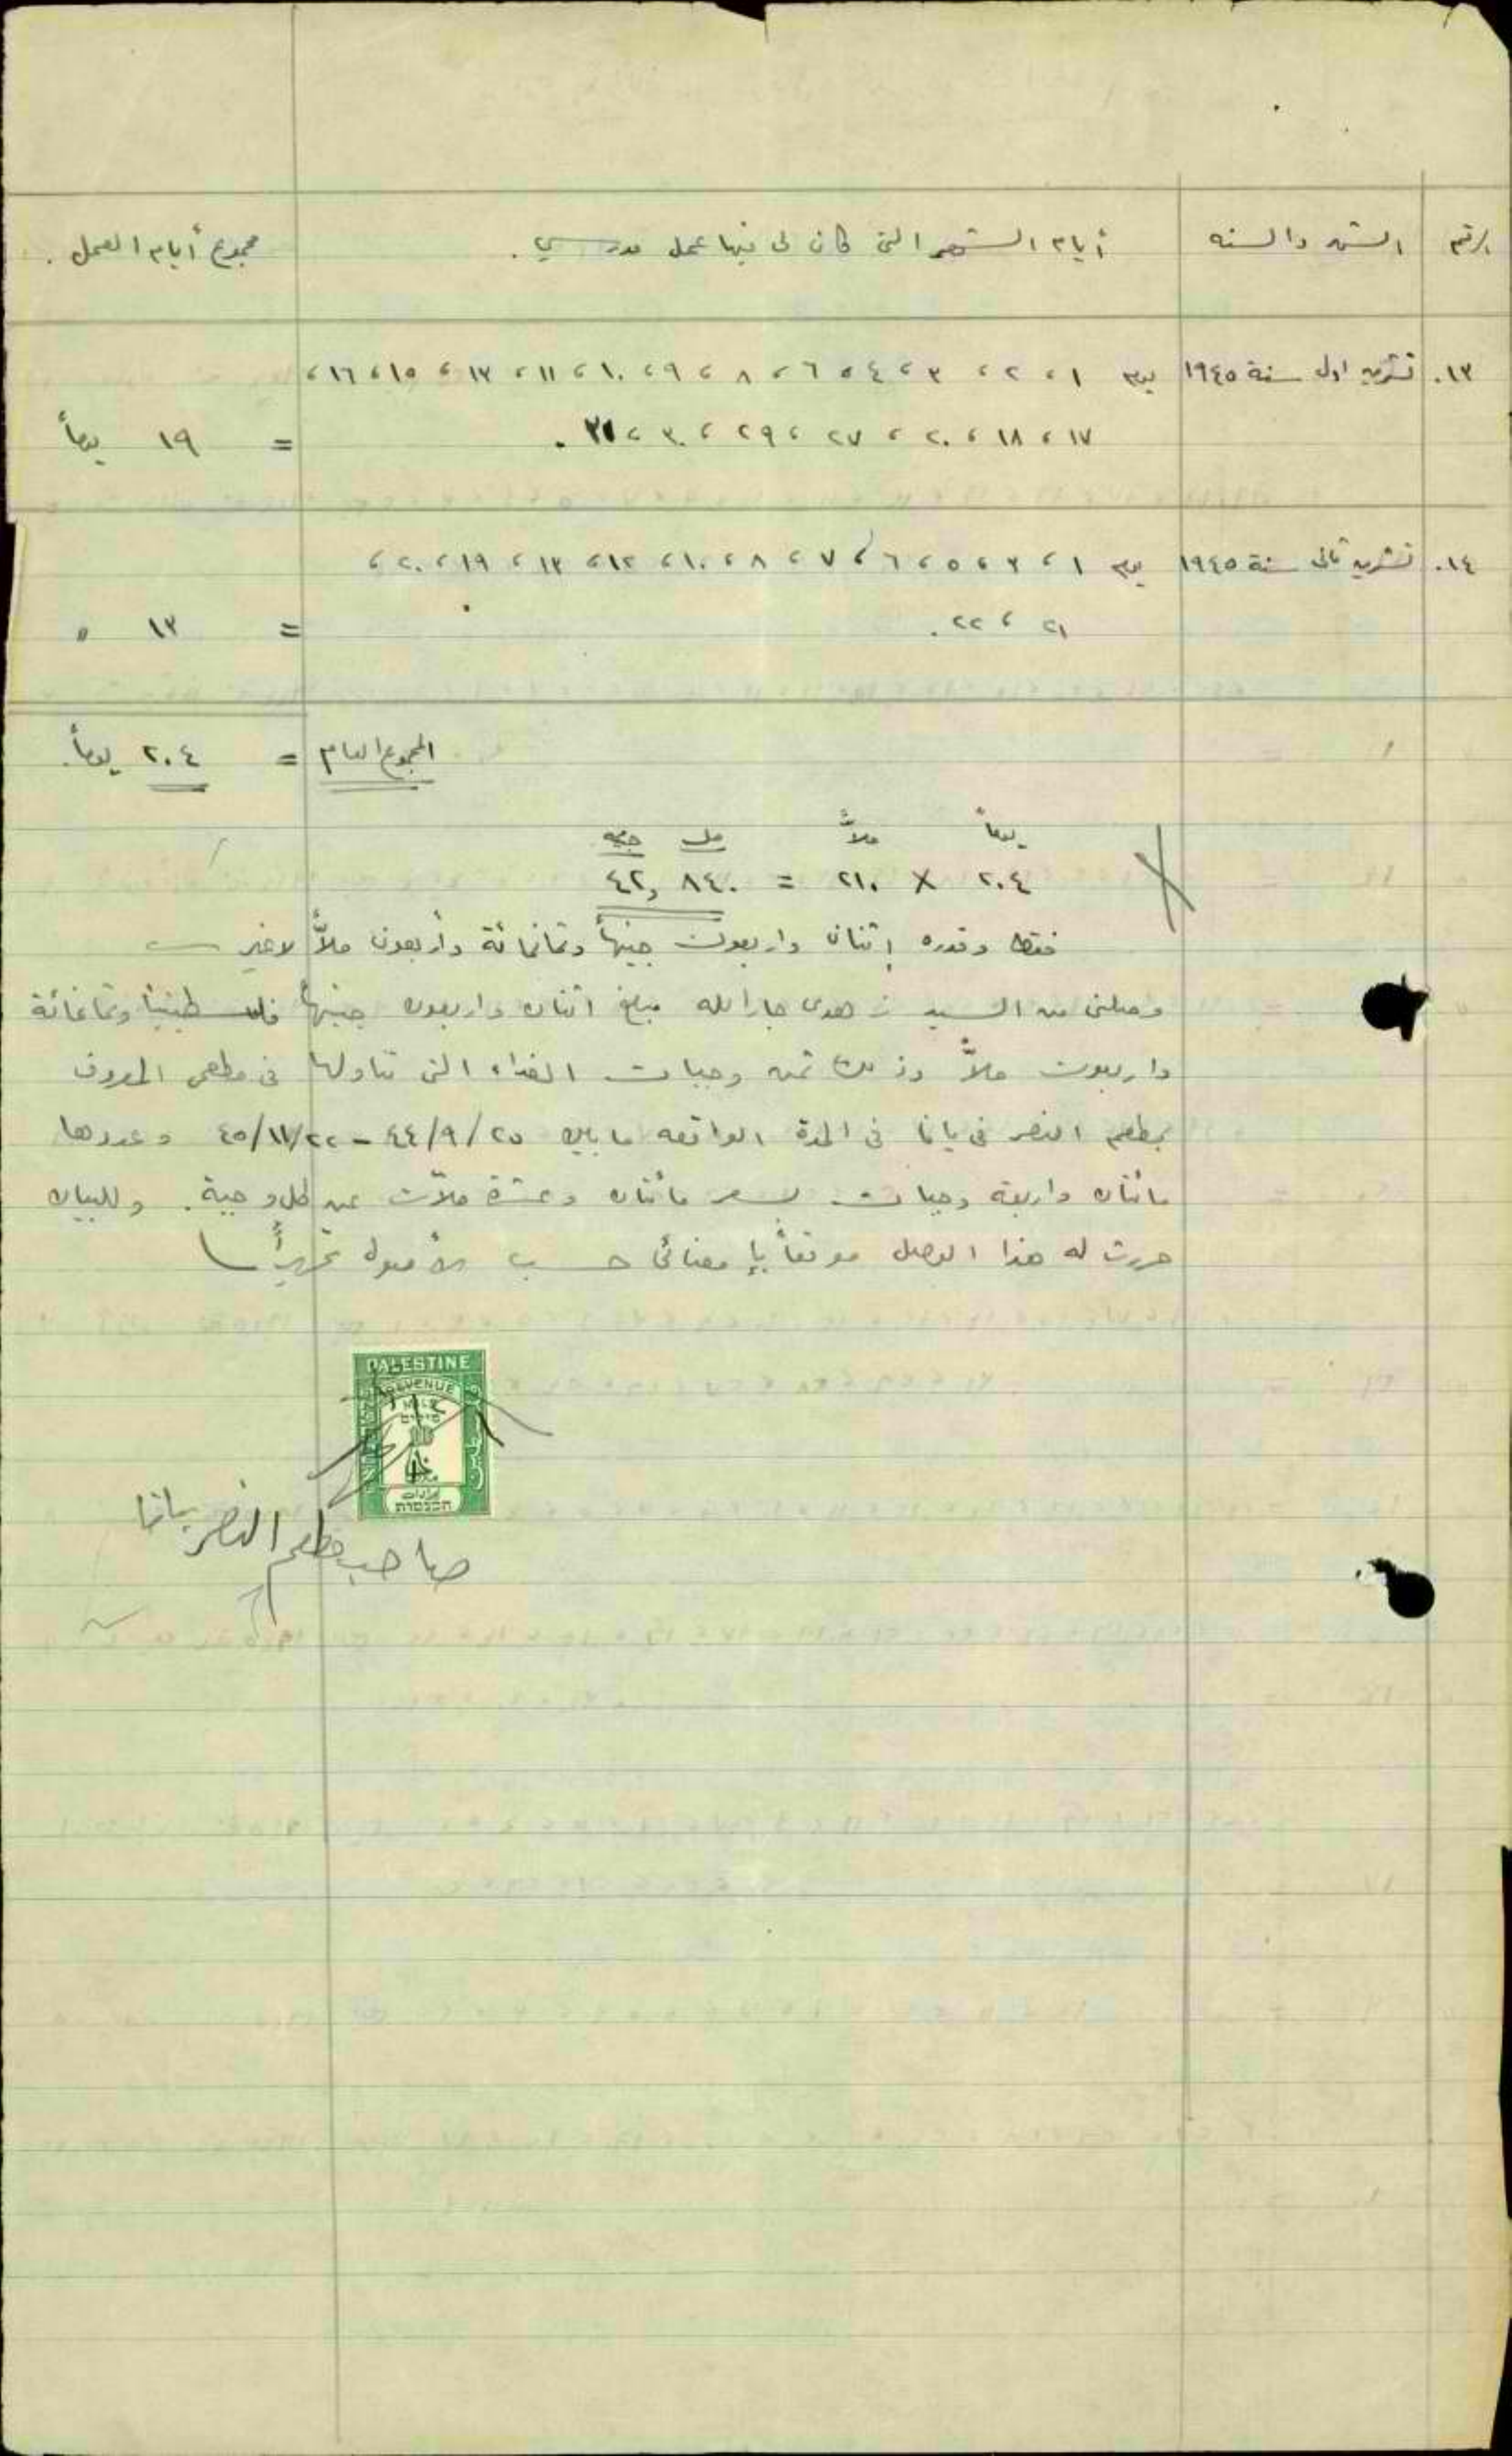 الرقم | الشهر والسنه | أيام الشهر التى كان لى فيها عمل مدرسي . | مجموع أيام العمل .
١٣. تشرين اول سنة ١٩٤٥ يوم ١ ، ٢ ، ٣ ، ٤ ، ٦ ، ٨ ، ٩ ، ١٠ ، ١١ ، ١٣ ، ١٥ ، ١٦ ،
١٧ ، ١٨ ، ٢٠ ، ٢٧ ، ٢٩ ، ٣٠ ، ٣١ . = ١٩ يوماً
١٤. تشرين ثانى سنة ١٩٤٥ يوم ١ ، ٣ ، ٥ ، ٦ ، ٧ ، ٨ ، ١٠ ، ١٢ ، ١٣ ، ١٩ ، ٢٠ ،
٢١ ، ٢٢ . = ١٣ "
المجموع العام = ٢٠٤ يوماً .
يوماً ملاً مل جنيه
٢٠٤ X ٢١٠ = ٨٤٠ ,٤٢
فقط وقدره إثنان واربعون جنيهاً وثمانمائة وأربعون ملاً لاغير
وصلنى من السيد زهدى جارالله مبلغ اثنان واربعون جنيهاً فلسطينياً وثمانمائة
واربعون ملاً وذلك ثمن وجبات الغداء التى تناولها فى مطعمى المعروف
بمطعم النصر فى يافا فى المدة الواقعه ما بين ٤٤/٩/٢٥ - ٤٥/١١/٢٢ وعددها
مائتان واربعة وجبات بسعر مائتان وعشرة ملات عن كل وجبة . وللبيان
حررت له هذا الوصل موقعاً بإمضائى حسب الأصول تحريراً
PALESTINE
REVENUE
إيرادات
הכנסות
صاحب مطعم النصر بيافا